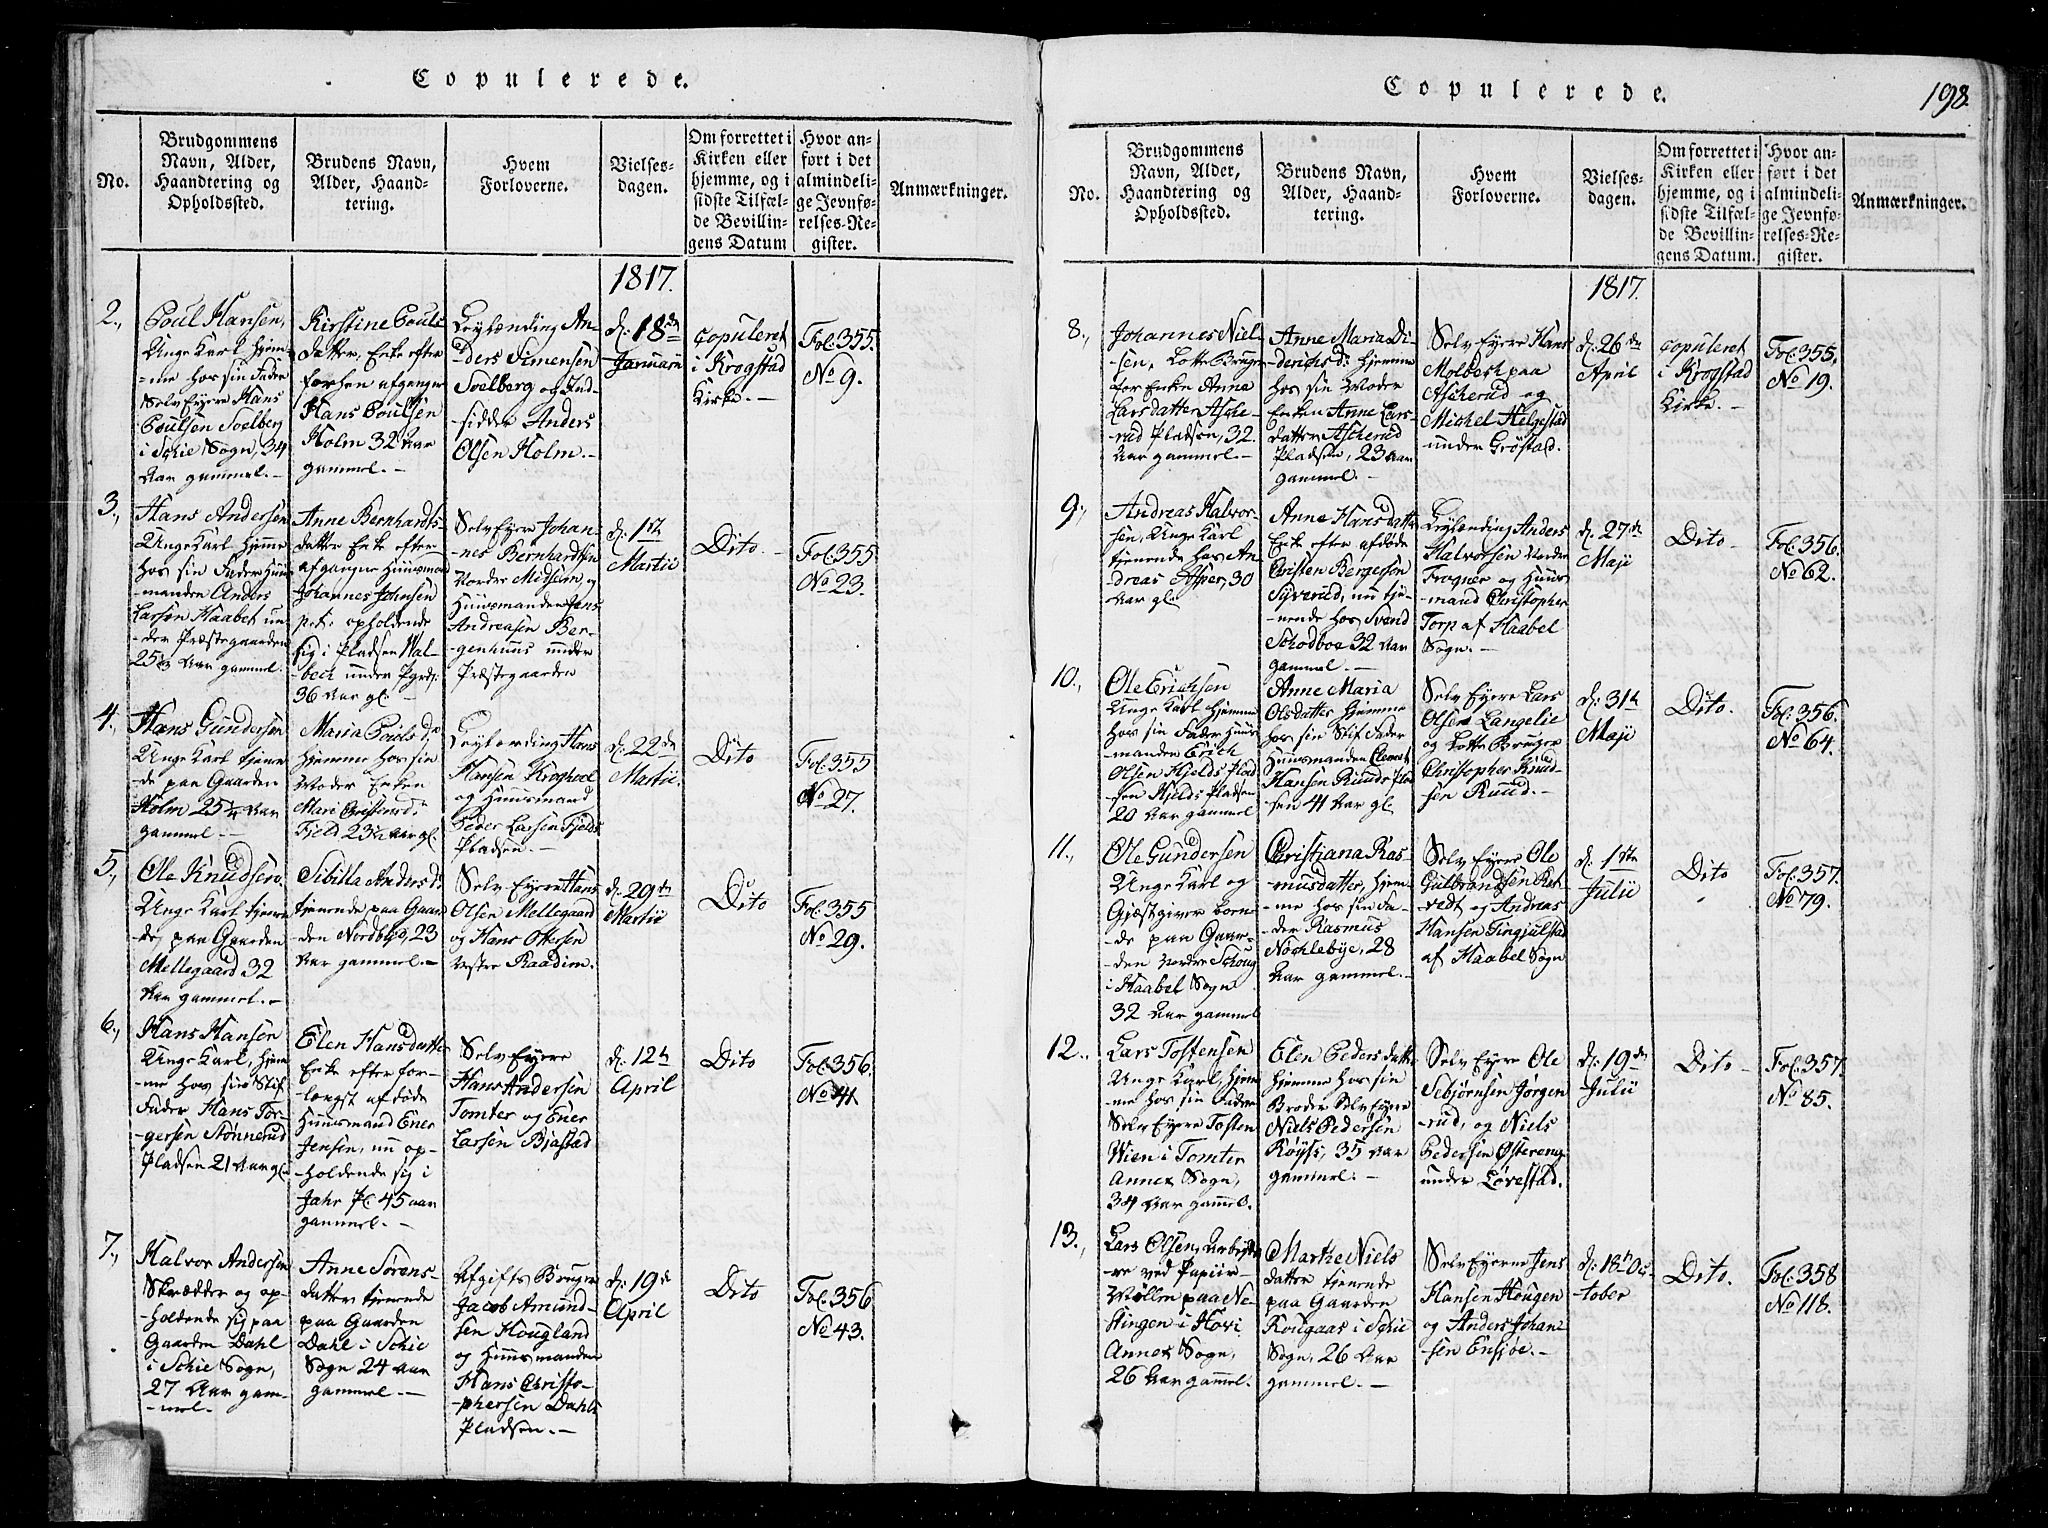 Copulerede.
No.
Brudgommens
Navn, Alder,
Haandtering og
Opholdssted.
Brudens Navn,
Alder, Haand-
tering.
Hvem
Forloverne.
Vielses-
dagen.
Om forrettet i
Kirken eller
hjemme, og i
sidste Tilfæl-
de Bevillin-
gens Datum
Hvor an-
ført i det
almindeli-
ge Jevnfø-
relses-Re-
gister.
Anmærkninger.
1817.
2.,
Poul Hansen,
Unge Karl hjem-
-me hos sin Fader
Selv Eyere Hans
Poulsen Soelberg
i Schie Sogn, 34
Aar gammel.-
Kirstine Pouls
datter, Enke efter
forhen afgangne
Hans Poulsen
Holm 32 Aar
gammel.-
Leylænding An-
ders Simensen
Soelberg og Ind-
sidder Anders
Olsen Holm.-
d: 18de
Januarii
copuleret
i Krogstad
Kirke.-
Fol. 355.
No 9.
3.,
Hans Andersen
Unge Karl hjemme
hos sin Fader Huus-
-manden Anders
Larsen Haabet un
-der Præstegaarden
25 Aar gammel
Anne Bernhardts-
datter Enke efter
afgangne Huusmand
Johannes Johnsen
p.t. opholdende
sig i Pladsen Wal-
beck under Pgrd:
36 Aar gl.-
Selv Eyere Johan-
-nes Bernhardsen
Nordre Midsem, og
Huusmanden Jens
Andreasen Ber-
genhuus under
Præstegaarden
d: 1ste
Martii
Dito.
Fol. 355
No 23.
4.,
Hans Gundersen
Unge Karl tjenen
de paa Gaarden
Holm 25 1/4 Aar
gammel.-
Maria Pouls d:
hjemme hos sin
Moder Enken
Mari Christensd:
Fjeld 23 1/2 Aar gl.
Leylænding Hans
Hansen Kroghoel
og Huusmand
Peder Larsen Fjelds
Pladsen.-
d: 22de
Martii.
Dito
Fol. 355
No 27.
5.,
Ole Knudsen.
Unge Karl tjenen
de paa Gaarden
Mellegaard 32
Aar gammel.-
Sibilla Anders d:
tjenende paa Gaar-
den Nordbye, 23
Aar gammel.-
Selv Eyere Hans
Olsen Mellegaard
og Hans Ottersen
vestre Raadim.
d: 29de
Martii
Dito
Fol. 355
No 29.
6.,
Hans Hansen
Unge Karl, hjem
-me hos sin Stif
Fader Hans Tor-
-gersen Stønnerud
Pladsen 21 Aar gl.
Elen Hansdatter
Enke efter for-
længst afdøde
Huusmand Ener
Jensen, nu op-
-holdende sig i
Jahr Pl. 45 aar
gammel.-
Selv Eyere
Hans Andersen
Tomter og Ener
Larsen Bjastad
d: 12te
April
Dito
Fol. 356.
No 41
7.,
Halvor Andersen
Skrædder og op-
-holdende sig paa
Gaarden Dahl
i Schie Sogn,
27 Aar gam-
-mel.
Anne Sørens-
datter tjenende
paa Gaarden
Dahl i Schie
Sogn 24 Aar
gammel.-
Afgifts Bruger
Jacob Amund-
sen Hougland
og Huusmanden
Hans Christo-
-phersen Dahls
Pladsen.-
d: 19de
April
Dito
Fol. 356
No 43.
Copulerede.
198.
No.
Brudgommens
Navn, Alder,
Haandtering og
Opholdssted.
Brudens Navn,
Alder, Haand-
tering.
Hvem
Forloverne.
Vielses-
dagen.
Om forrettet i
Kirken eller
hjemme, og i
sidste Tilfæl-
de Bevillin-
gens Datum.
Hvor an-
ført i det
almindeli-
ge Jevnfø-
relses-Re-
gister.
Anmærkninger.
1817.
8.,
Johannes Niel-
sen, Lotte Bruger
for Enke Anne
Larsdatter Asche-
-rud Pladsen, 32.
Aar gammel.-
Anne Maria Di-
derichsd: hjemme
hos sin Moder
Enken Anne Lars-
datter Ascherud
Pladsen, 23 Aar
gammel.-
Selv Eyere Hans
Molbech paa
Ascherud og
Michel Helgestad
under Grøstad.
d: 26de
April
copuleret
i Krogstad
Kirke.-
Fol. 355.
No 19.
9.,
Andreas Halvor-
sen, Unge Karl
tjenende hos An-
dreas Asper, 30
Aar gl.
Anne Hansdatter
Enke efter afdøde
Christen Bergesen
Syverud, nu tje-
-nende hos Svend
Schodboe 32 Aar
gammel.-
Leylænding Anders
Halvorsen Nordre
Frogner og Huus-
mand Christopher
Torp af Haabel
Sogn.-
d: 27de
Maji
Dito
Fol. 356.
No 62.
10.,
Ole Erichsen
Unge Karl hjemme
hos sin Fader Huus-
manden Erich
Olsen Hjelds Plad
sen Hjelds Pladsen
20 Aar gammel
Anne Maria
Olsdatter hjemme
hos sin Stif Fader
Huusmanden Clemet
Hansen Ruuds Plad
sen 41 Aar gl.
Selv Eyere Lars
Olsen Langelie
og Lotte Bruger
Christopher Knud-
sen Ruud.-
d: 31te
Maji
Dito.
Fol. 356.
No 64.
11.,
Ole Gundersen
Unge Karl og
Gjæstgiver boen-
-de paa Gaar-
-den Nordre Schoug
i Haabel Sogn
32 Aar gammel
Christiana Ras-
musdatter, hjem-
me hos sin Fa-
der Rasmus
Nøchlebye, 28
Aar gammel.-
Selv Eyere Ole
Gulbrandsen Ret-
vedt og Andreas
Hansen Tingjulstad
af Haabel Sogn
d: 1ste
Julii
Dito
Fol. 357.
No 79.
12.,
Lars Tostensen
Unge Karl, hjem
-me hos sin Fader
Selv Eyere Tosten
Wien i Tomter
Annex Sogn,
34 Aar gammel.
Elen Pedersdatter
hjemme hos sin
Broder Selv Eyere
Niels Pedersen
Røyss, 35 Aar
gammel.-
Selv Eyere Ole
Sebjørnsen Jørgen
-rud, og Niels
Pedersen Østereng
under Løvestad.
d: 19de
Julii
Dito
Fol. 357.
No 85.
13.,
Lars Olsen, Arbejde-
-re ved Papiir-
Møllen paa Ne-
-stingen i Hovi
Annex Sogn,
26 Aar gammel.
Marthe Niels
datter tjenende
paa Gaarden
Kougaas i Schie
Sogn, 26 Aar
gammel.-
Selv Eyere Jens
Hansen Hougen
og Anders Johan-
sen Ensjøe.-
d: 18de Oc-
-tober
Dito.
Fol. 358
No 118.